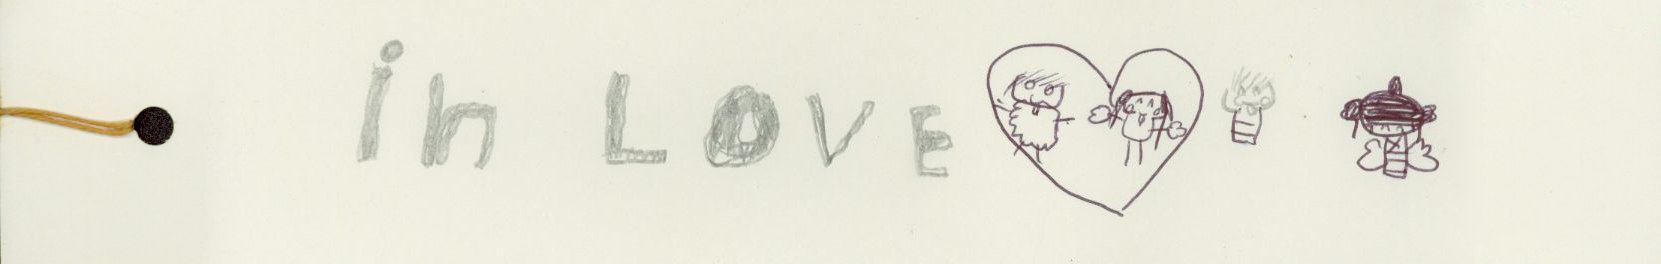 in LOVE